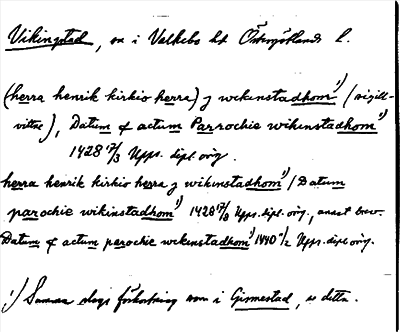 Vikingstad, sn i Valkebo hd Östergötlands l.
(herra henrik kirkio herra) j wikinstadhom¹) / (sigill-
vittne), Datum & actum Parrochie wikinstadhom¹)
1428 17/3 Upps. dipl. orig.
herra henrik kirkio herra j wikinstadhom¹) / Datum
parochie wikinstadhom¹) 1428 17/3 Upps. dipl. orig., annat brev.
Datum & actum parochie wikinstadhom¹) 1440 /2 Upps. dipl. orig.
¹) Samma slags förkortning som i Gismestad, se detta.